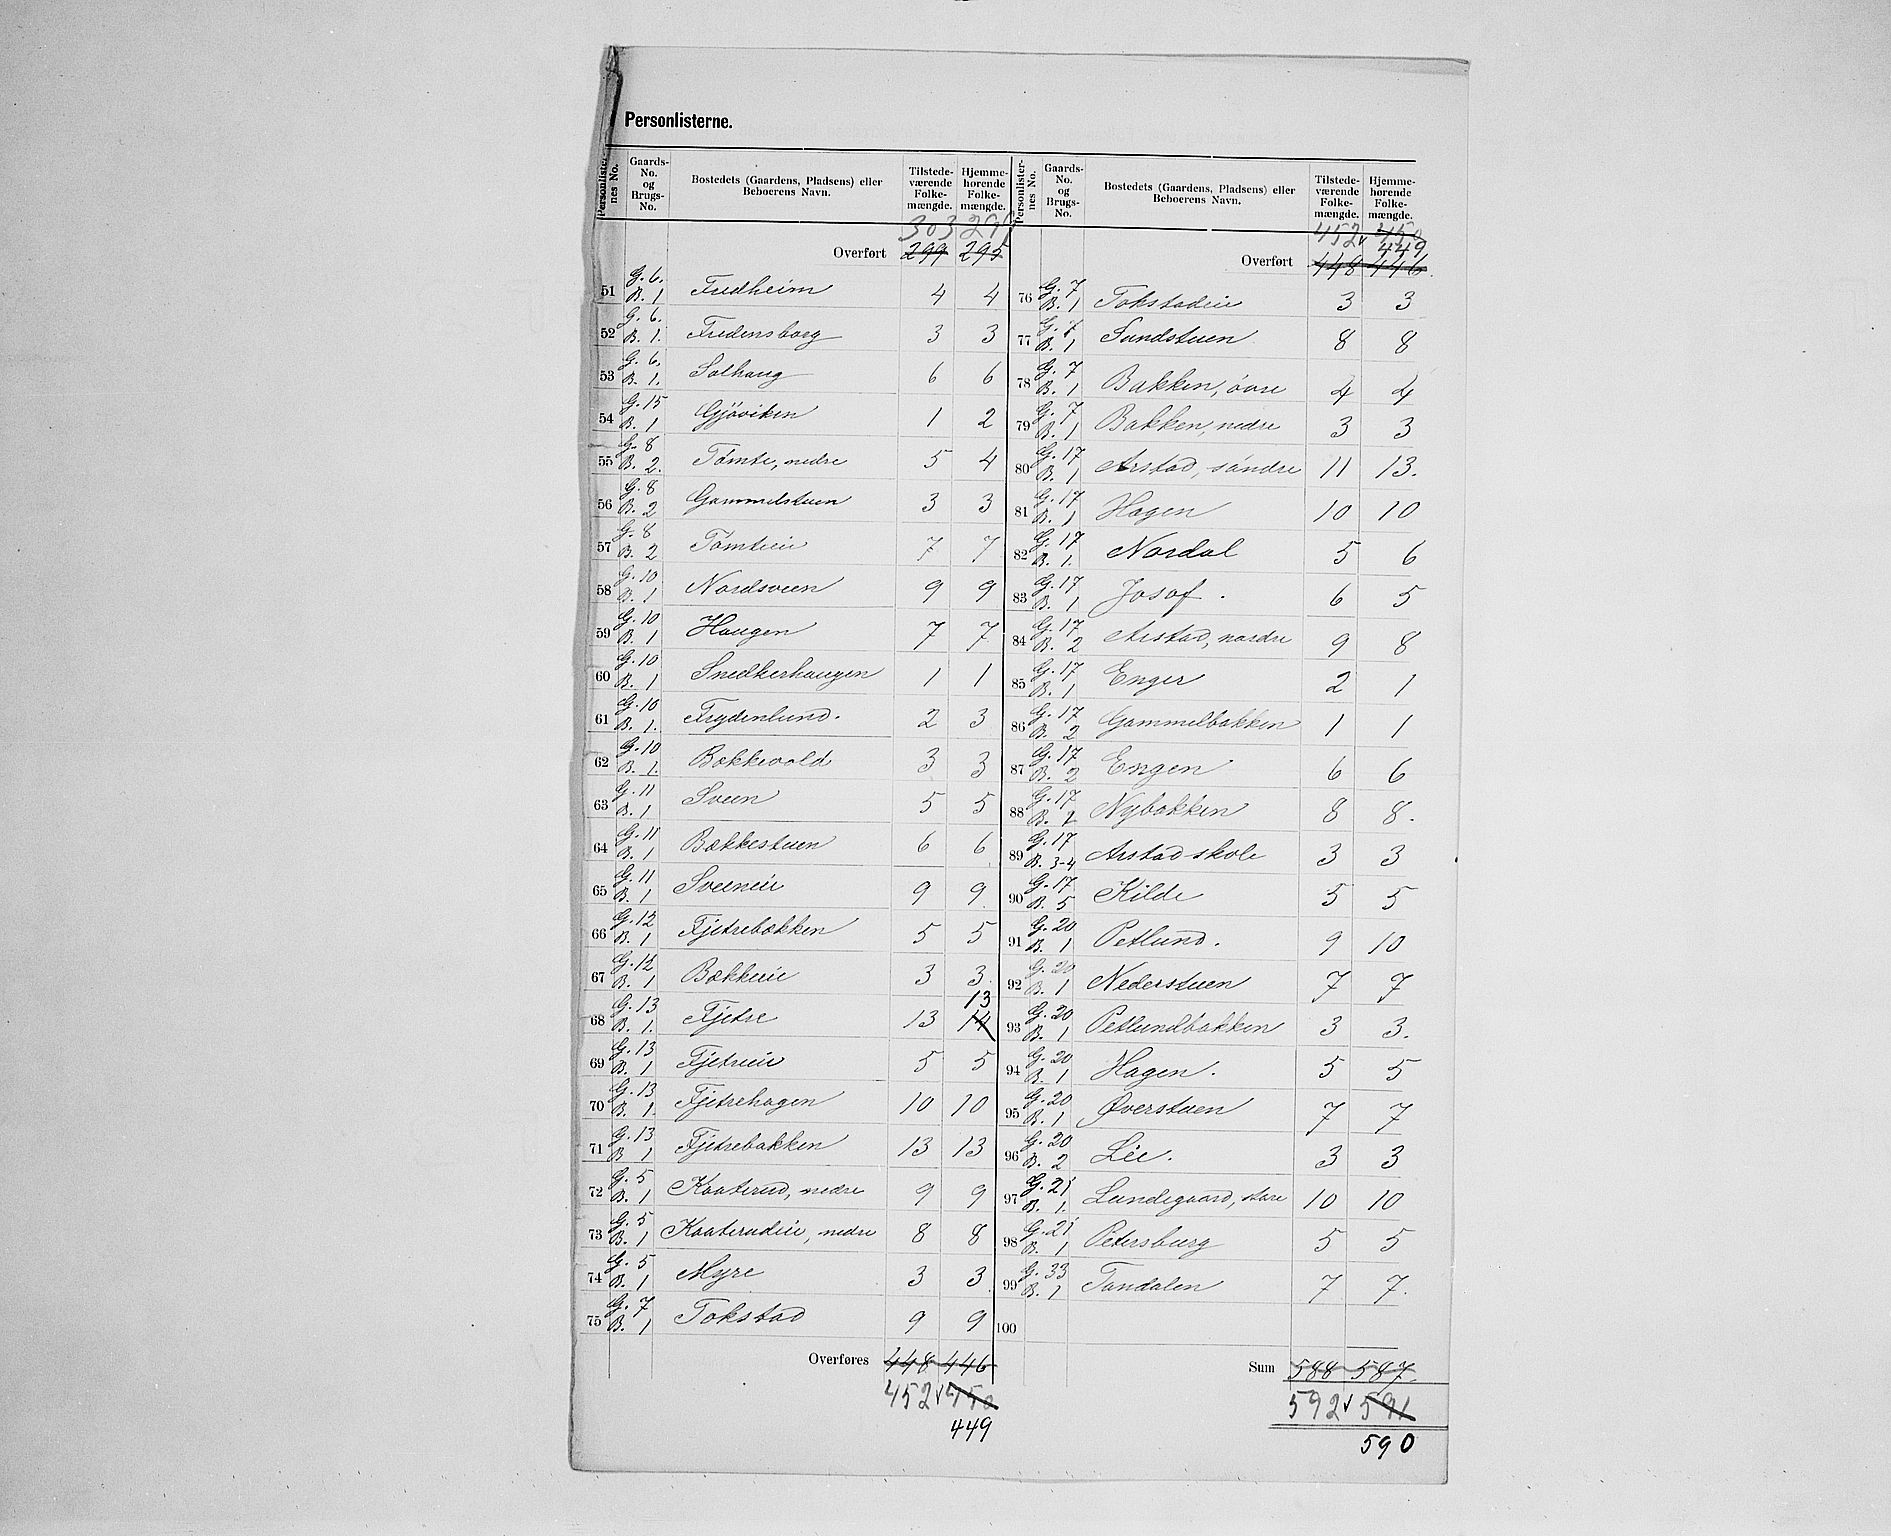 Personlisterne.
Personlister-nes No. | Gaards-No. og Brugs-No. | Bostedets (Gaardens, Pladsens) eller Beboerens Navn. | Tilstede-værende Folke-mængde. | Hjemme-hørende Folke-mængde.
303
Overført 299 295
51 G. 6. B. 1 Fredheim 4 4
52 G. 6. B. 1. Fredensborg 3 3
53 G. 6. B. 1. Solhaug 6 6
54 G. 15 B. 1 Gjöviken 1 2
55 G. 8 B. 2. Tömte, nedre 5 4
56 G. 8 B. 2 Gammelstuen 3 3
57 G. 8 B. 2 Tömteeie 7 7
58 G. 10 B. 1 Nordsveen 9 9
59 G. 10 B. 1 Haugen 7 7
60 G. 10 B. 1 Snedkerhaugen 1 1
61 G. 10 B. 1. Frydenlund. 2 3
62 G. 10 B. 1. Bækkevold 3 3
63 G. 11 B. 1 Sveen 5 5
64 G. 11 B. 1 Bækkestuen 6 6
65 G. 11 B. 1 Sveeneie 9 9
66 G. 12 B. 1 Fjetrebækken 5 5
67 G. 12 B. 1 Bækkeeie 3 3
13
68 G. 13 B. 1. Fjetre 13 14
69 G. 13 B. 1 Fjetreeie 5 5
70 G. 13 B. 1. Fjetrehagen 10 10
71 G. 13 B 1 Fjetrebakken 13 13
72 G. 5 B. 1 Kaaterud, nedre 9 9
73 G. 5 B. 1 Kaaterudeie, nedre 8 8
74 G. 5 B. 1 Myre 3 3
75 G. 7 B. 1 Tokstad 9 9
Overføres 448 446
452 450
449
Personlister-nes No. | Gaards-No. og Brugs-No. | Bostedets (Gaardens, Pladsens) eller Beboerens Navn. | Tilstede-værende Folke-mængde. | Hjemme-hørende Folke-mængde.
452 450
449
Overført 448 446
76 G. 7 B. 1 Tokstadeie 3 3
77 G. 7 B. 1 Sundstuen 8 8
78 G. 7 B. 1 Bakken, övre 4 4
79 G. 7 B. 1 Bakken, nedre 3 3
80 G. 17 B. 1 Arstad, söndre 11 13.
81 G. 17 B. 1 Hagen 10 10
82 G. 17 B. 1. Nordal 5 6
83 G. 17 B. 1 Josaf. 6 5
84 G. 17 B. 2 Arstad, nordre 9 8
85 G. 17 B. 1 Enger 2 1
86 G. 17 B. 2 Gammelbakken 1 1
87 G. 17 B. 2 Engen 6 6
88 G. 17 B. 2 Nybakken 8 8.
89 G. 17 B. 3-4 Arstad skole 3 3
90 G. 17 B. 5 Kilde 5 5
91 G. 20 B. 1 Petlund. 9 10
92 G. 20 B. 1 Nederstuen 7 7
93 G. 20 B. 1 Petlundbakken 3 3.
94 G. 20 B. 1 Hagen. 5 5
95 G. 20 B. 1 Øverstuen 7 7
96 G. 20 B. 2 Lie. 3 3
97 G. 21 B. 1. Lundegaard, store 10 10
98 G. 21 B. 1 Petersburg 5 5
99 G. 33 B. 1 Tandalen 7 7.
100
Sum 588 587
592 591
590